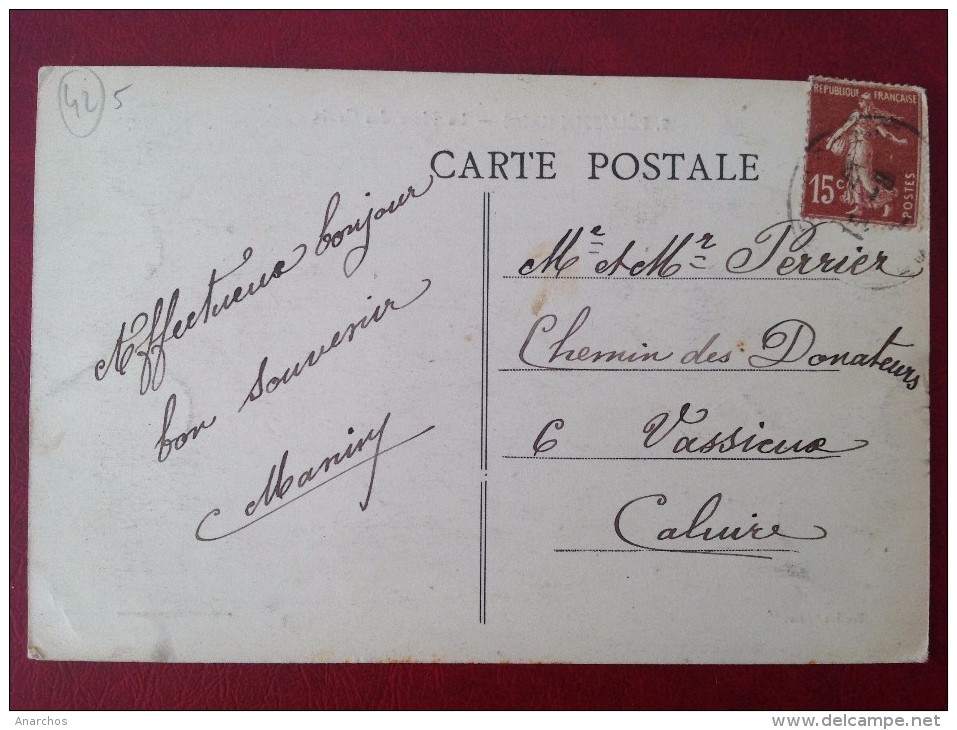 42 5
CARTE POSTALE
REPUBLIQUE FRANÇAISE
15c
POSTES
Affectueux bonjour
bon souvenir
Me et Mr Perrier
Chemin des Donateurs
6 Vassieux
Caluire
Anarchos
www.delcampe.net